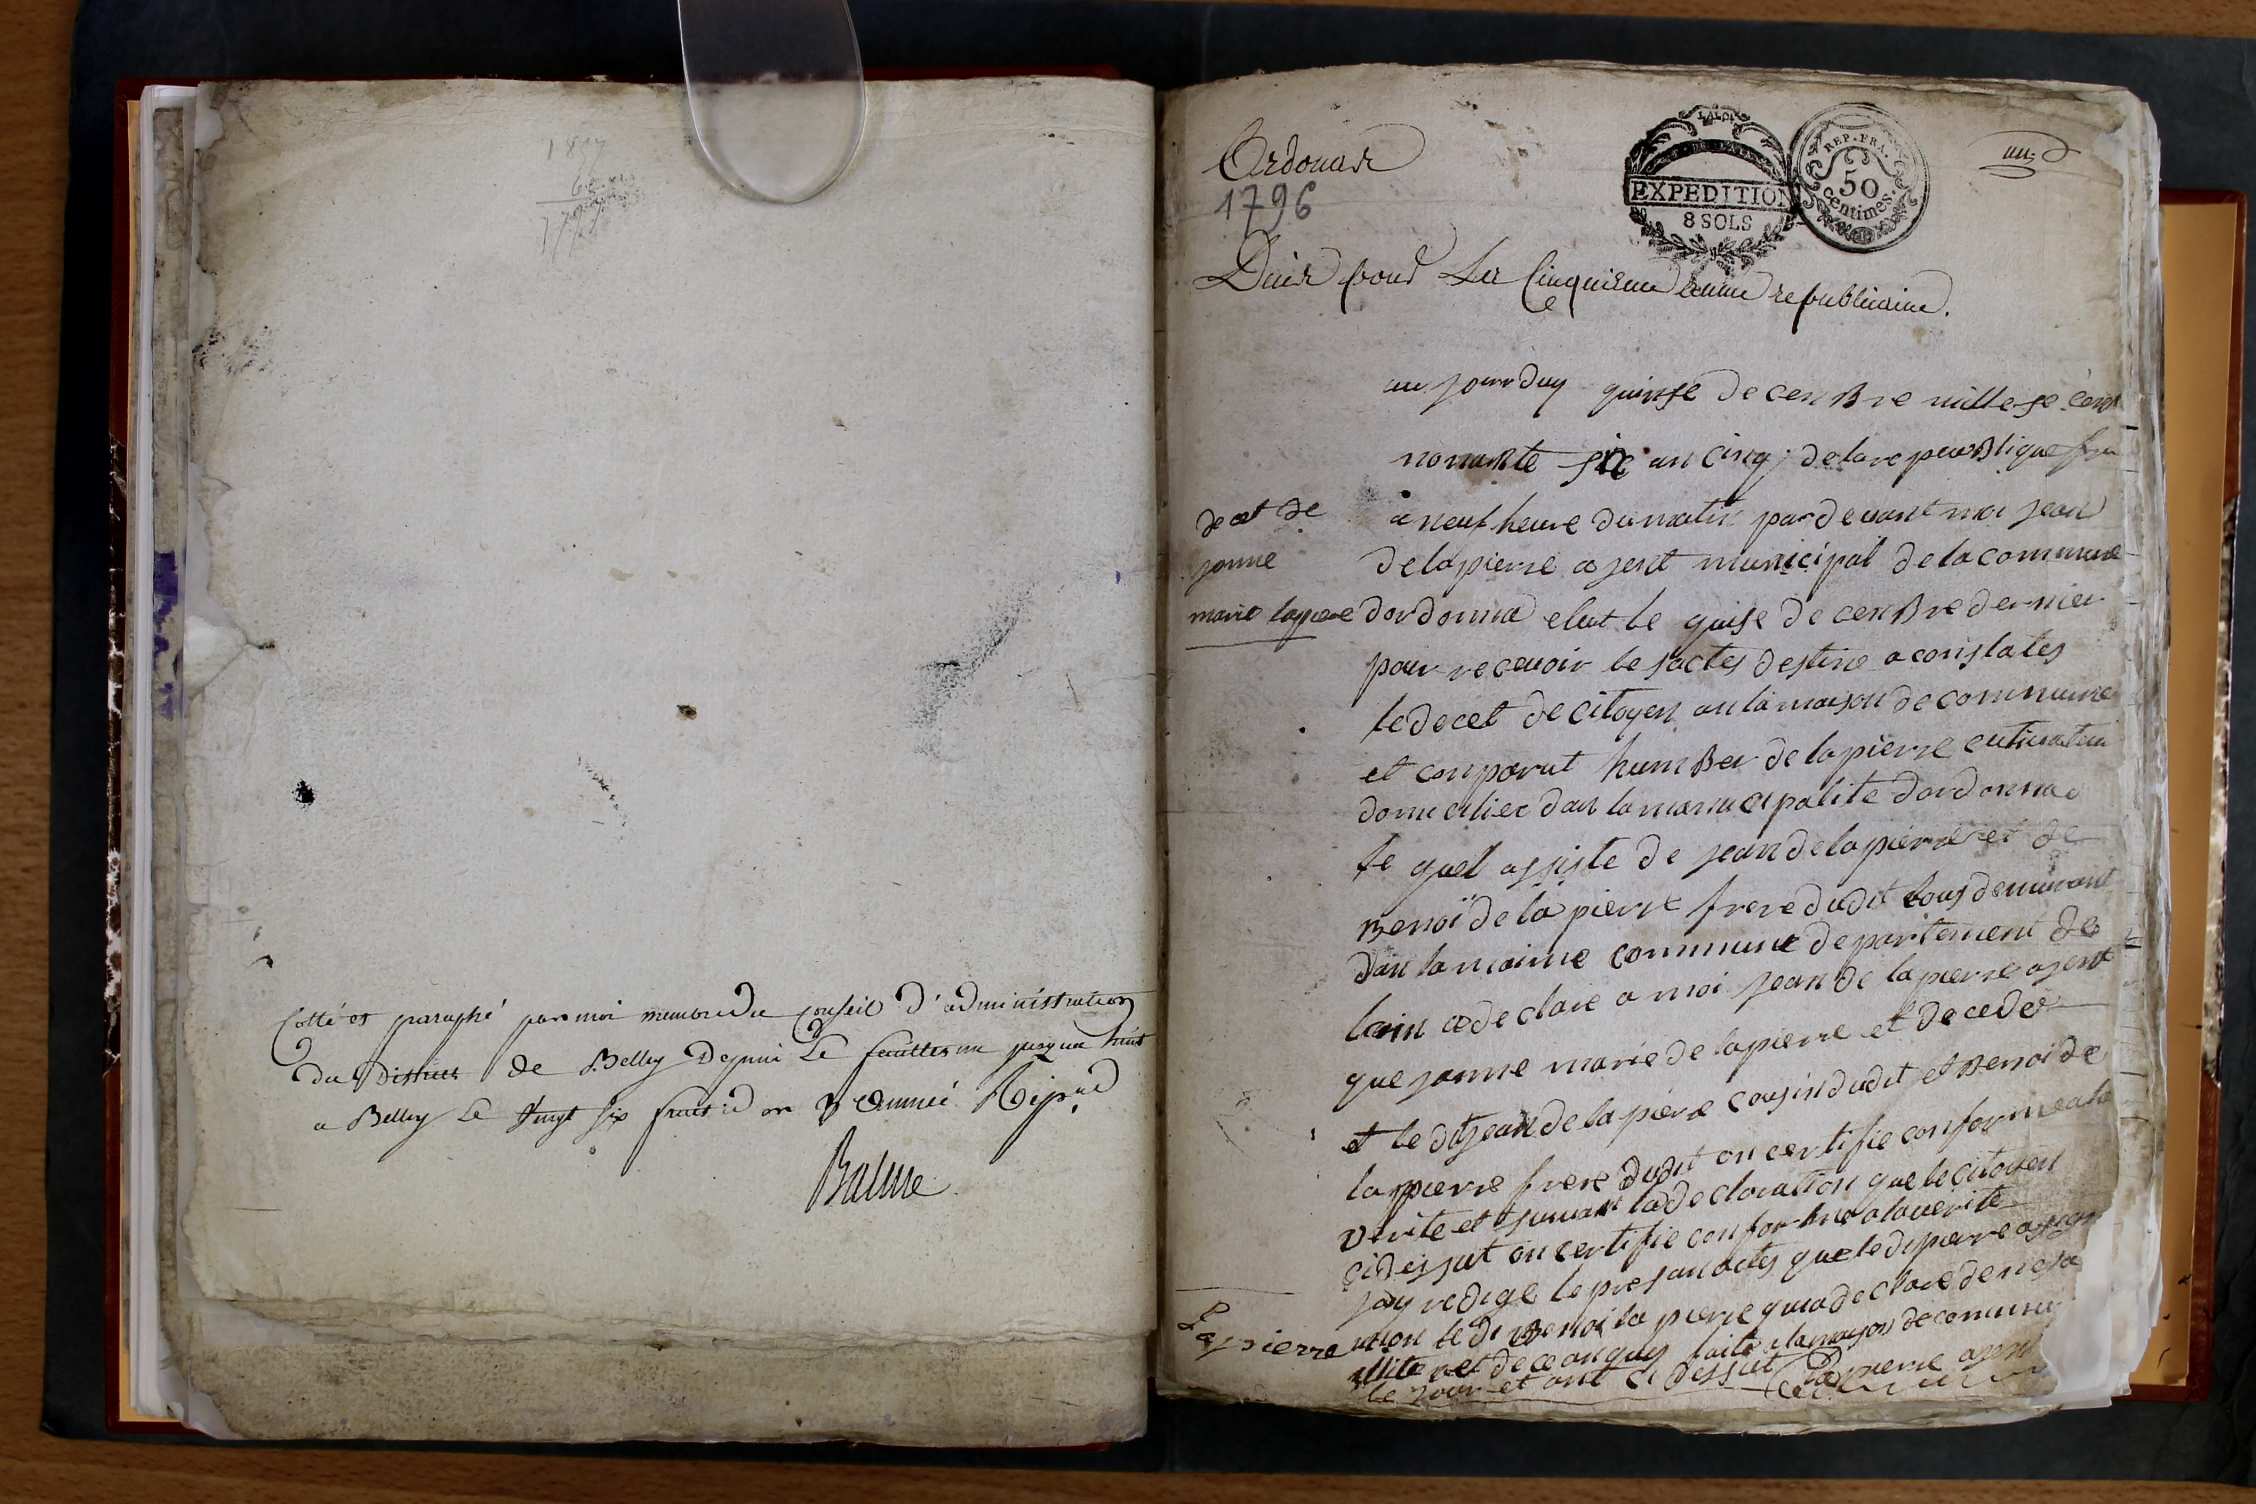 1857
61
1796
Cotté et paraphé par moi membre du conseil d'administration
du District de Belley Depuis Le feuillet un jusqua huit
a Belley Le Vingt six fructid an
Balme
Ordonas
1796
un
EXPEDITION
8 SOLS
REP. FRA.
50
Centimes.
Deces pour La Cinquieme année republicaine.
au jourduy quinse decenBre mille se cent
nonante six an cinq de la repeuBlique fra
decet de
jonne
marie lapiere
a neuf heure du matin par devant moi jean
delapierre agent municipal de la commune
dordonna elut le quise decenBre dernier
pour recevoir le sactes destine a constates
le decet de citoyen an la maison de commune
et conparut humBer de lapierre cultivateur
domicilier dan la municipalite dordonna
le quel assiste de jean delapierre et de
Benoi de la pierre frere dudit tous demurant
dan la maime commune departement de
lain a declare a moi jean de lapierre agent
que jonne marie de lapierre et decede
et le dit jean de la piere cousin dudit et Benoi de
la pierre frere dudit on certifie conforme a la
verite et suivant la declaration que le citoyen
ci dessut on certifie conforme a la verite
jay redige le presan actes que le di pierre a signe
mon le di Benoi la pierre qui a declare de ne sa
faite a la maison de commune
le jour et ant ci dessut Lapierre agent
Lapierre